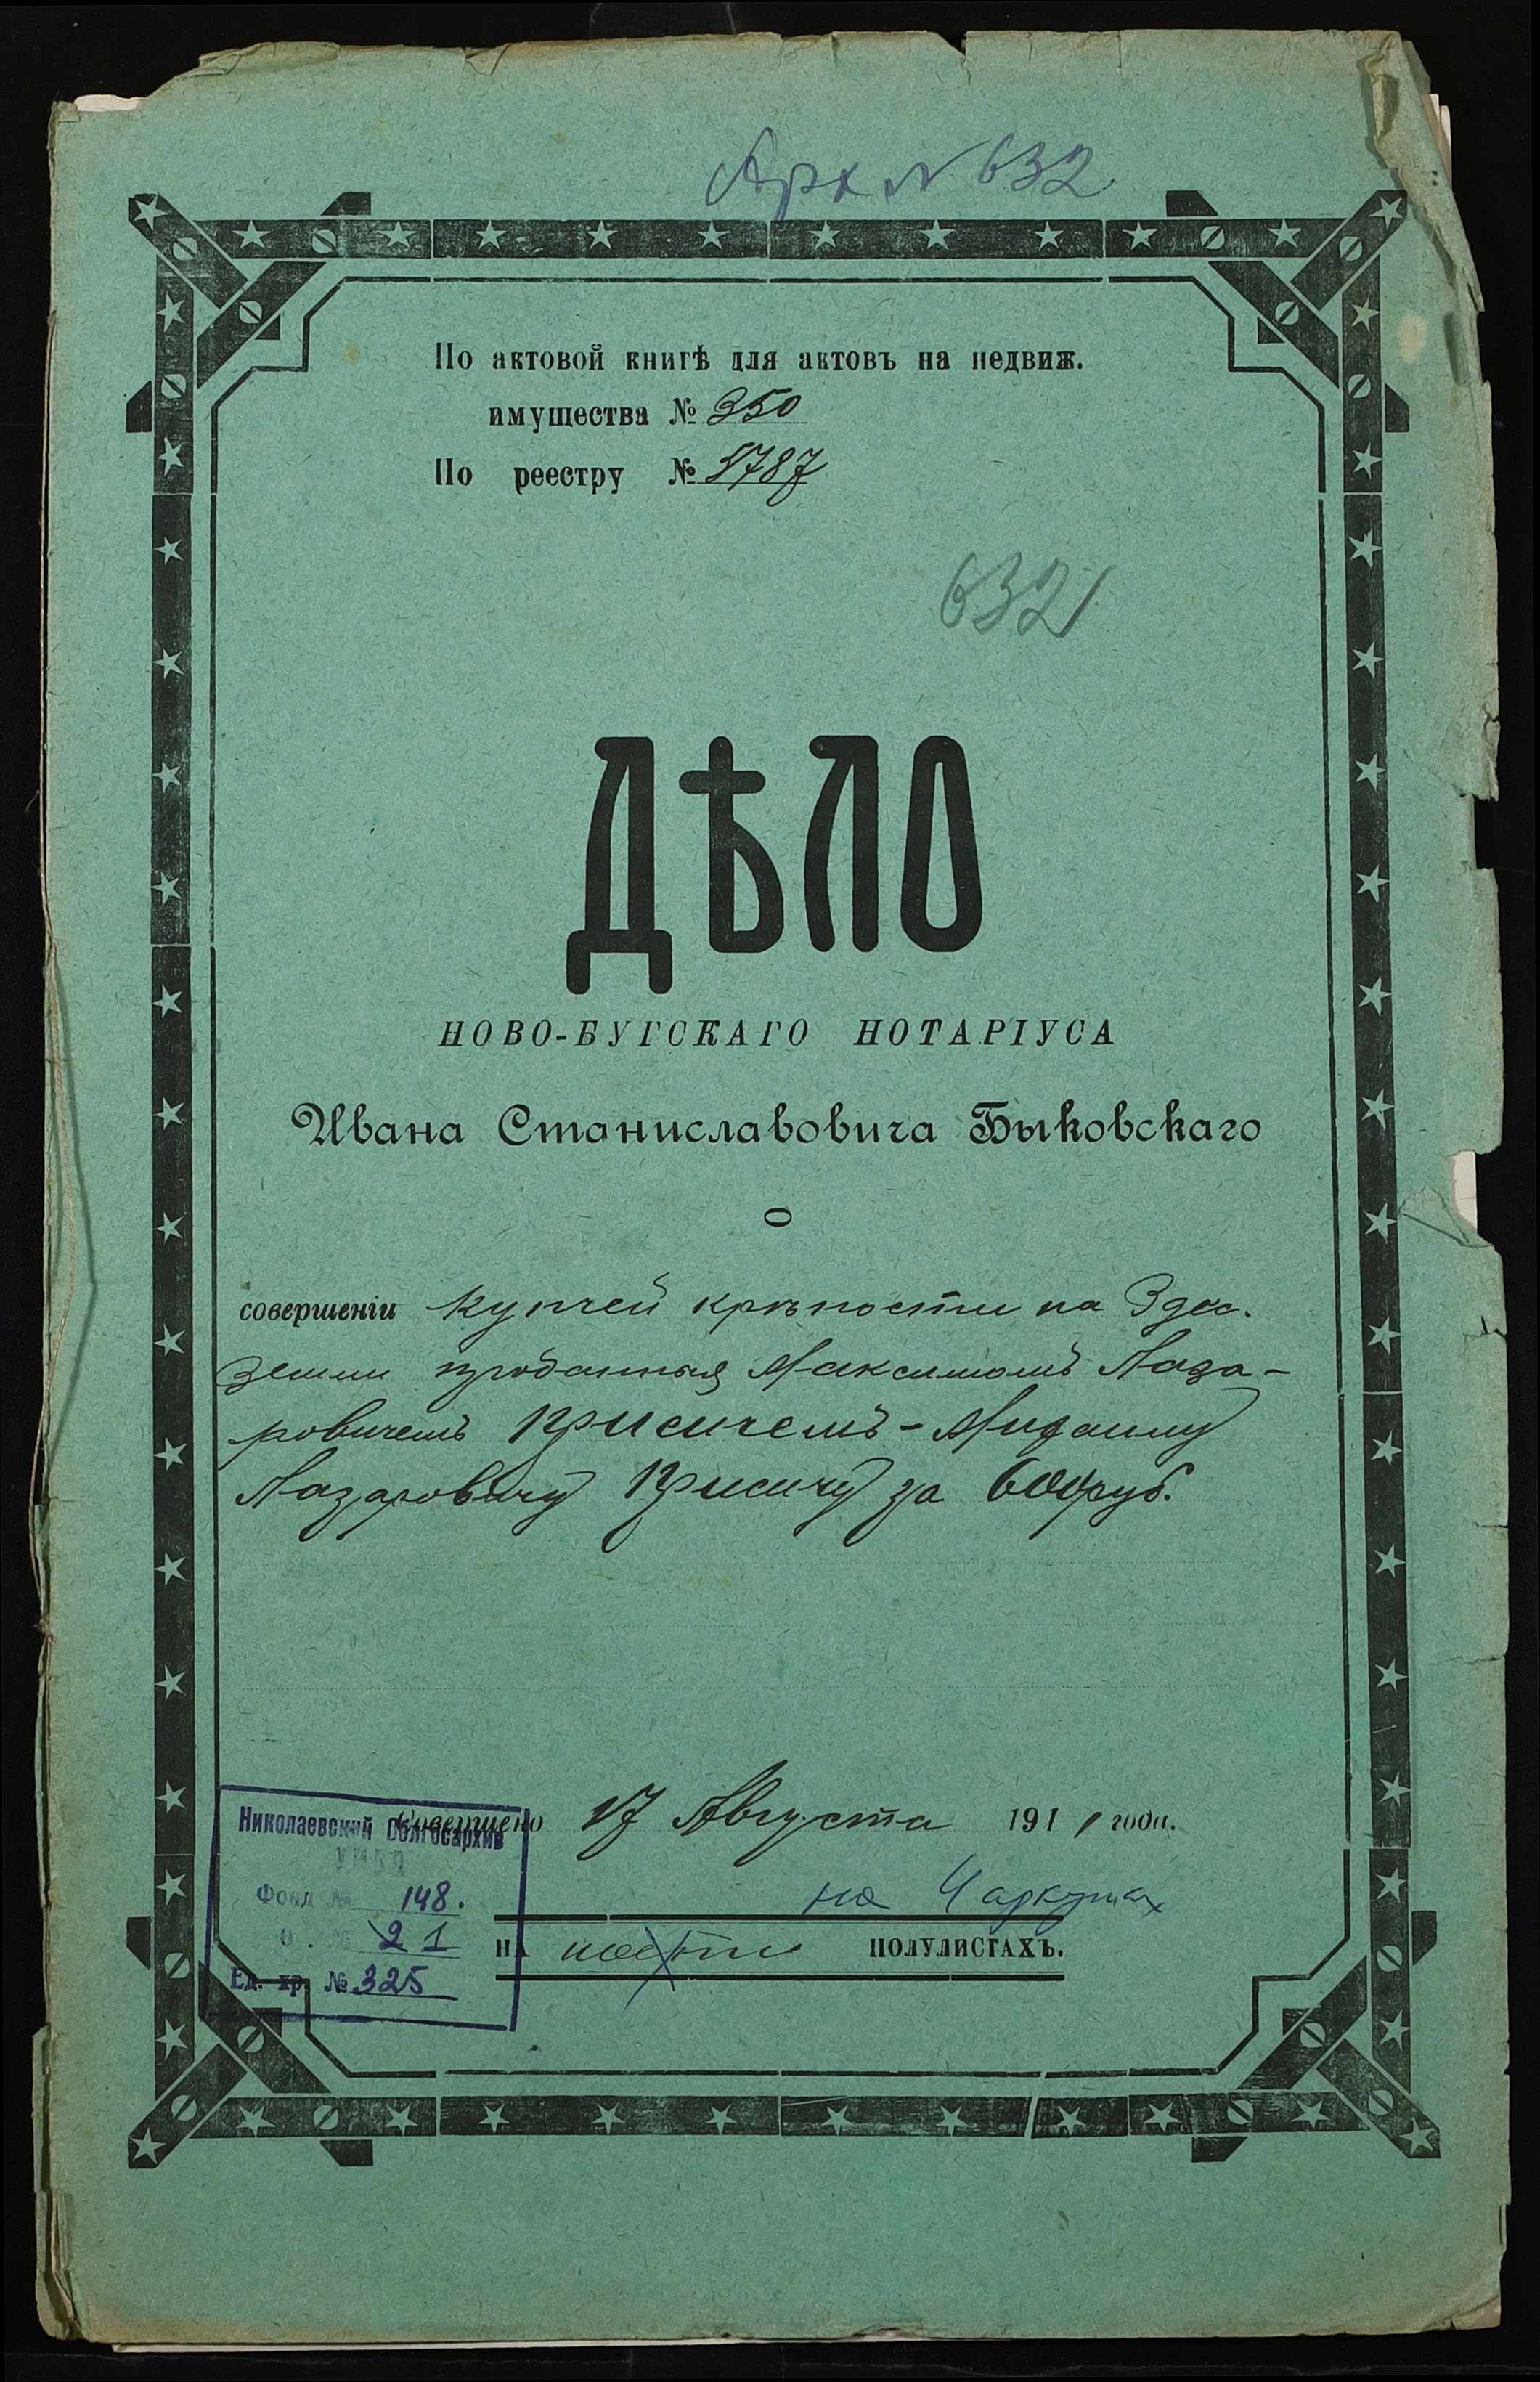 Арх № 632
По актовой книгѣ для актовъ на недвиж.
имущества № 350
По реестру № 5787
632
ДѢЛО
НОВО-БУГСКАГО НОТАРІУСА
Ивана Станиславовича Быковскаго
О
совершеніи купчей крѣпости на 3 дес.
земли проданныя Максимомъ Лаза-
ровичемъ Крисичемъ - Михаилу
Лазаровичу Крисичу за 600 руб.
Совершено 17 Августа 1911 года.
Николаевский Облгосархив
УМВД
Фонд № 148.
О. 21
Ед. хр. № 325
на 4 аркушах
НА ПОЛУЛИСТАХЪ.